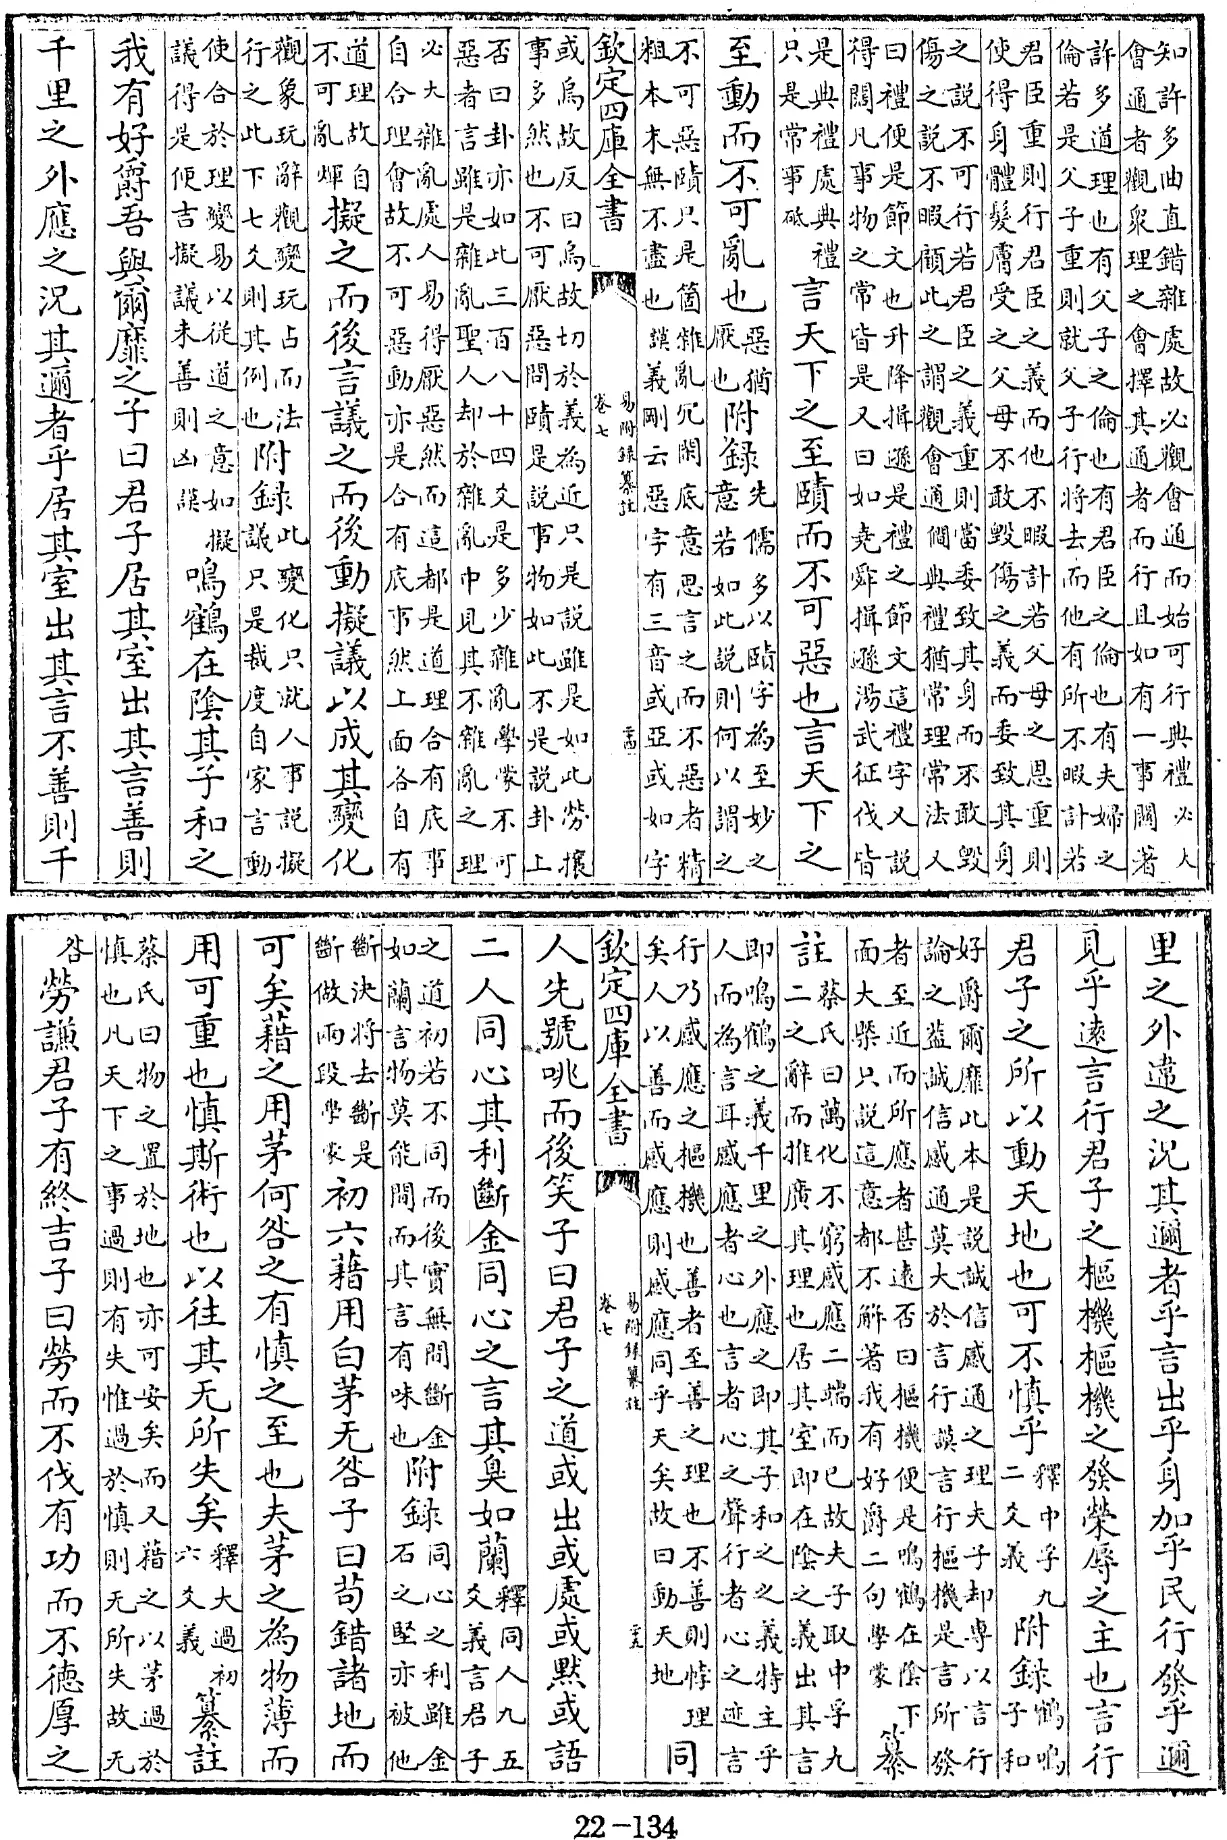 知許多曲直錯雜處故必觀會通而始可行典禮必大
會通者觀衆理之會擇其通者而行且如有一事關著
許多道理也有父子之倫也有君臣之倫也有夫婦之
倫若是父子重則就父子行將去而他有所不暇計若
君臣重則行君臣之義而他不暇計若父母之恩重則
使得身體髮膚受之父母不敢毀傷之義而委致其身
之說不可行若君臣之義重則當委致其身而不敢毀
傷之說不暇顧此之謂觀會通僩典禮猶常理常法人
曰禮便是節文也升降揖遜是禮之節文這禮字又說
得闊凡事物之常皆是又曰如堯舜揖遜湯武征伐皆
是典禮處典禮
只是常事砥
言天下之至賾而不可惡也言天下之
至動而不可亂也
惡猶
厭也
附録
先儒多以賾字為至妙之
意若如此說則何以謂之
不可惡賾只是箇雜亂冗閙底意思言之而不惡者精
粗本末無不盡也謨義剛云惡字有三音或亞或如字
欽定四庫全書
易附録纂註
卷七
二十四
或烏故反曰烏故切於義為近只是說雖是如此勞攘
事多然也不可厭惡問賾是說事物如此不是說卦上
否曰卦亦如此三百八十四爻是多少雜亂學蒙不可
惡者言雖是雜亂聖人却於雜亂中見其不雜亂之理
必大雜亂處人易得厭惡然而這都是道理合有底事
自合理會故不可惡動亦是合有底事然上面各自有
道理故自
不可亂㽦
擬之而後言議之而後動擬議以成其變化
觀象玩辭觀變玩占而法
行之此下七爻則其例也
附録
此變化只就人事說擬
議只是裁度自家言動
使合於理變易以從道之意如擬
議得是便吉擬議未善則凶謨
鳴鶴在陰其子和之
我有好爵吾與爾靡之子曰君子居其室出其言善則
千里之外應之況其邇者乎居其室出其言不善則千
里之外違之況其邇者乎言出乎身加乎民行發乎邇
見乎遠言行君子之樞機樞機之發榮辱之主也言行
君子之所以動天地也可不慎乎
釋中孚九
二爻義
附録
鶴鳴
子和
好爵爾靡此本是說誠信感通之理夫子却專以言行
論之蓋誠信感通莫大於言行謨言行樞機是言所發
者至近而所應者甚遠否曰樞機便是鳴鶴在陰下
面大槩只說這意都不解著我有好爵二句學蒙
纂
註
蔡氏曰萬化不窮感應二端而已故夫子取中孚九
二之辭而推廣其理也居其室即在陰之義出其言
即鳴鶴之義千里之外應之即其子和之之義特主乎
人而為言耳感應者心也言者心之聲行者心之迹言
行乃感應之樞機也善者至善之理也不善則悖理
矣人以善而感應則感應同乎天矣故曰動天地
同
欽定四庫全書
易附録纂註
卷七
二十五
人先號咷而後笑子曰君子之道或出或處或默或語
二人同心其利斷金同心之言其臭如蘭
釋同人九五
爻義言君子
之道初若不同而後實無間斷金
如蘭言物莫能間而其言有味也
附録
同心之利雖金
石之堅亦被他
斷決將去斷是
斷做兩段學蒙
初六藉用白茅无咎子曰苟錯諸地而
可矣藉之用茅何咎之有慎之至也夫茅之為物薄而
用可重也慎斯術也以往其无所失矣
釋大過初
六爻義
纂註
蔡氏曰物之置於地也亦可安矣而又藉之以茅過於
慎也凡天下之事過則有失惟過於慎則无所失故无
咎
勞謙君子有終吉子曰勞而不伐有功而不德厚之
22-134